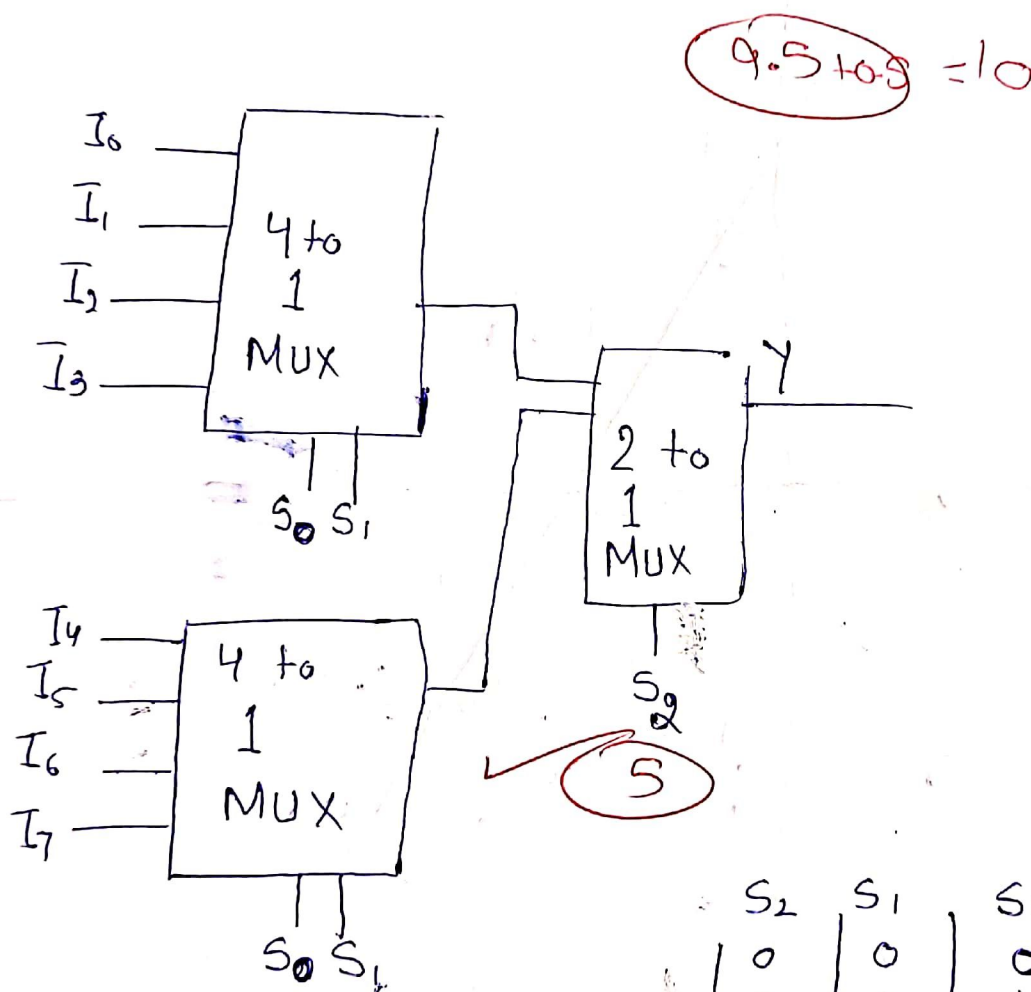 9.5+0.5 = 10
I₀
I₁
I₂
I₃
4 to
1
MUX
S₀ S₁
Y
2 to
1
MUX
S₂
5
I₄
I₅
I₆
I₇
4 to
1
MUX
S₀ S₁
S₂ S₁ S
0 0 0